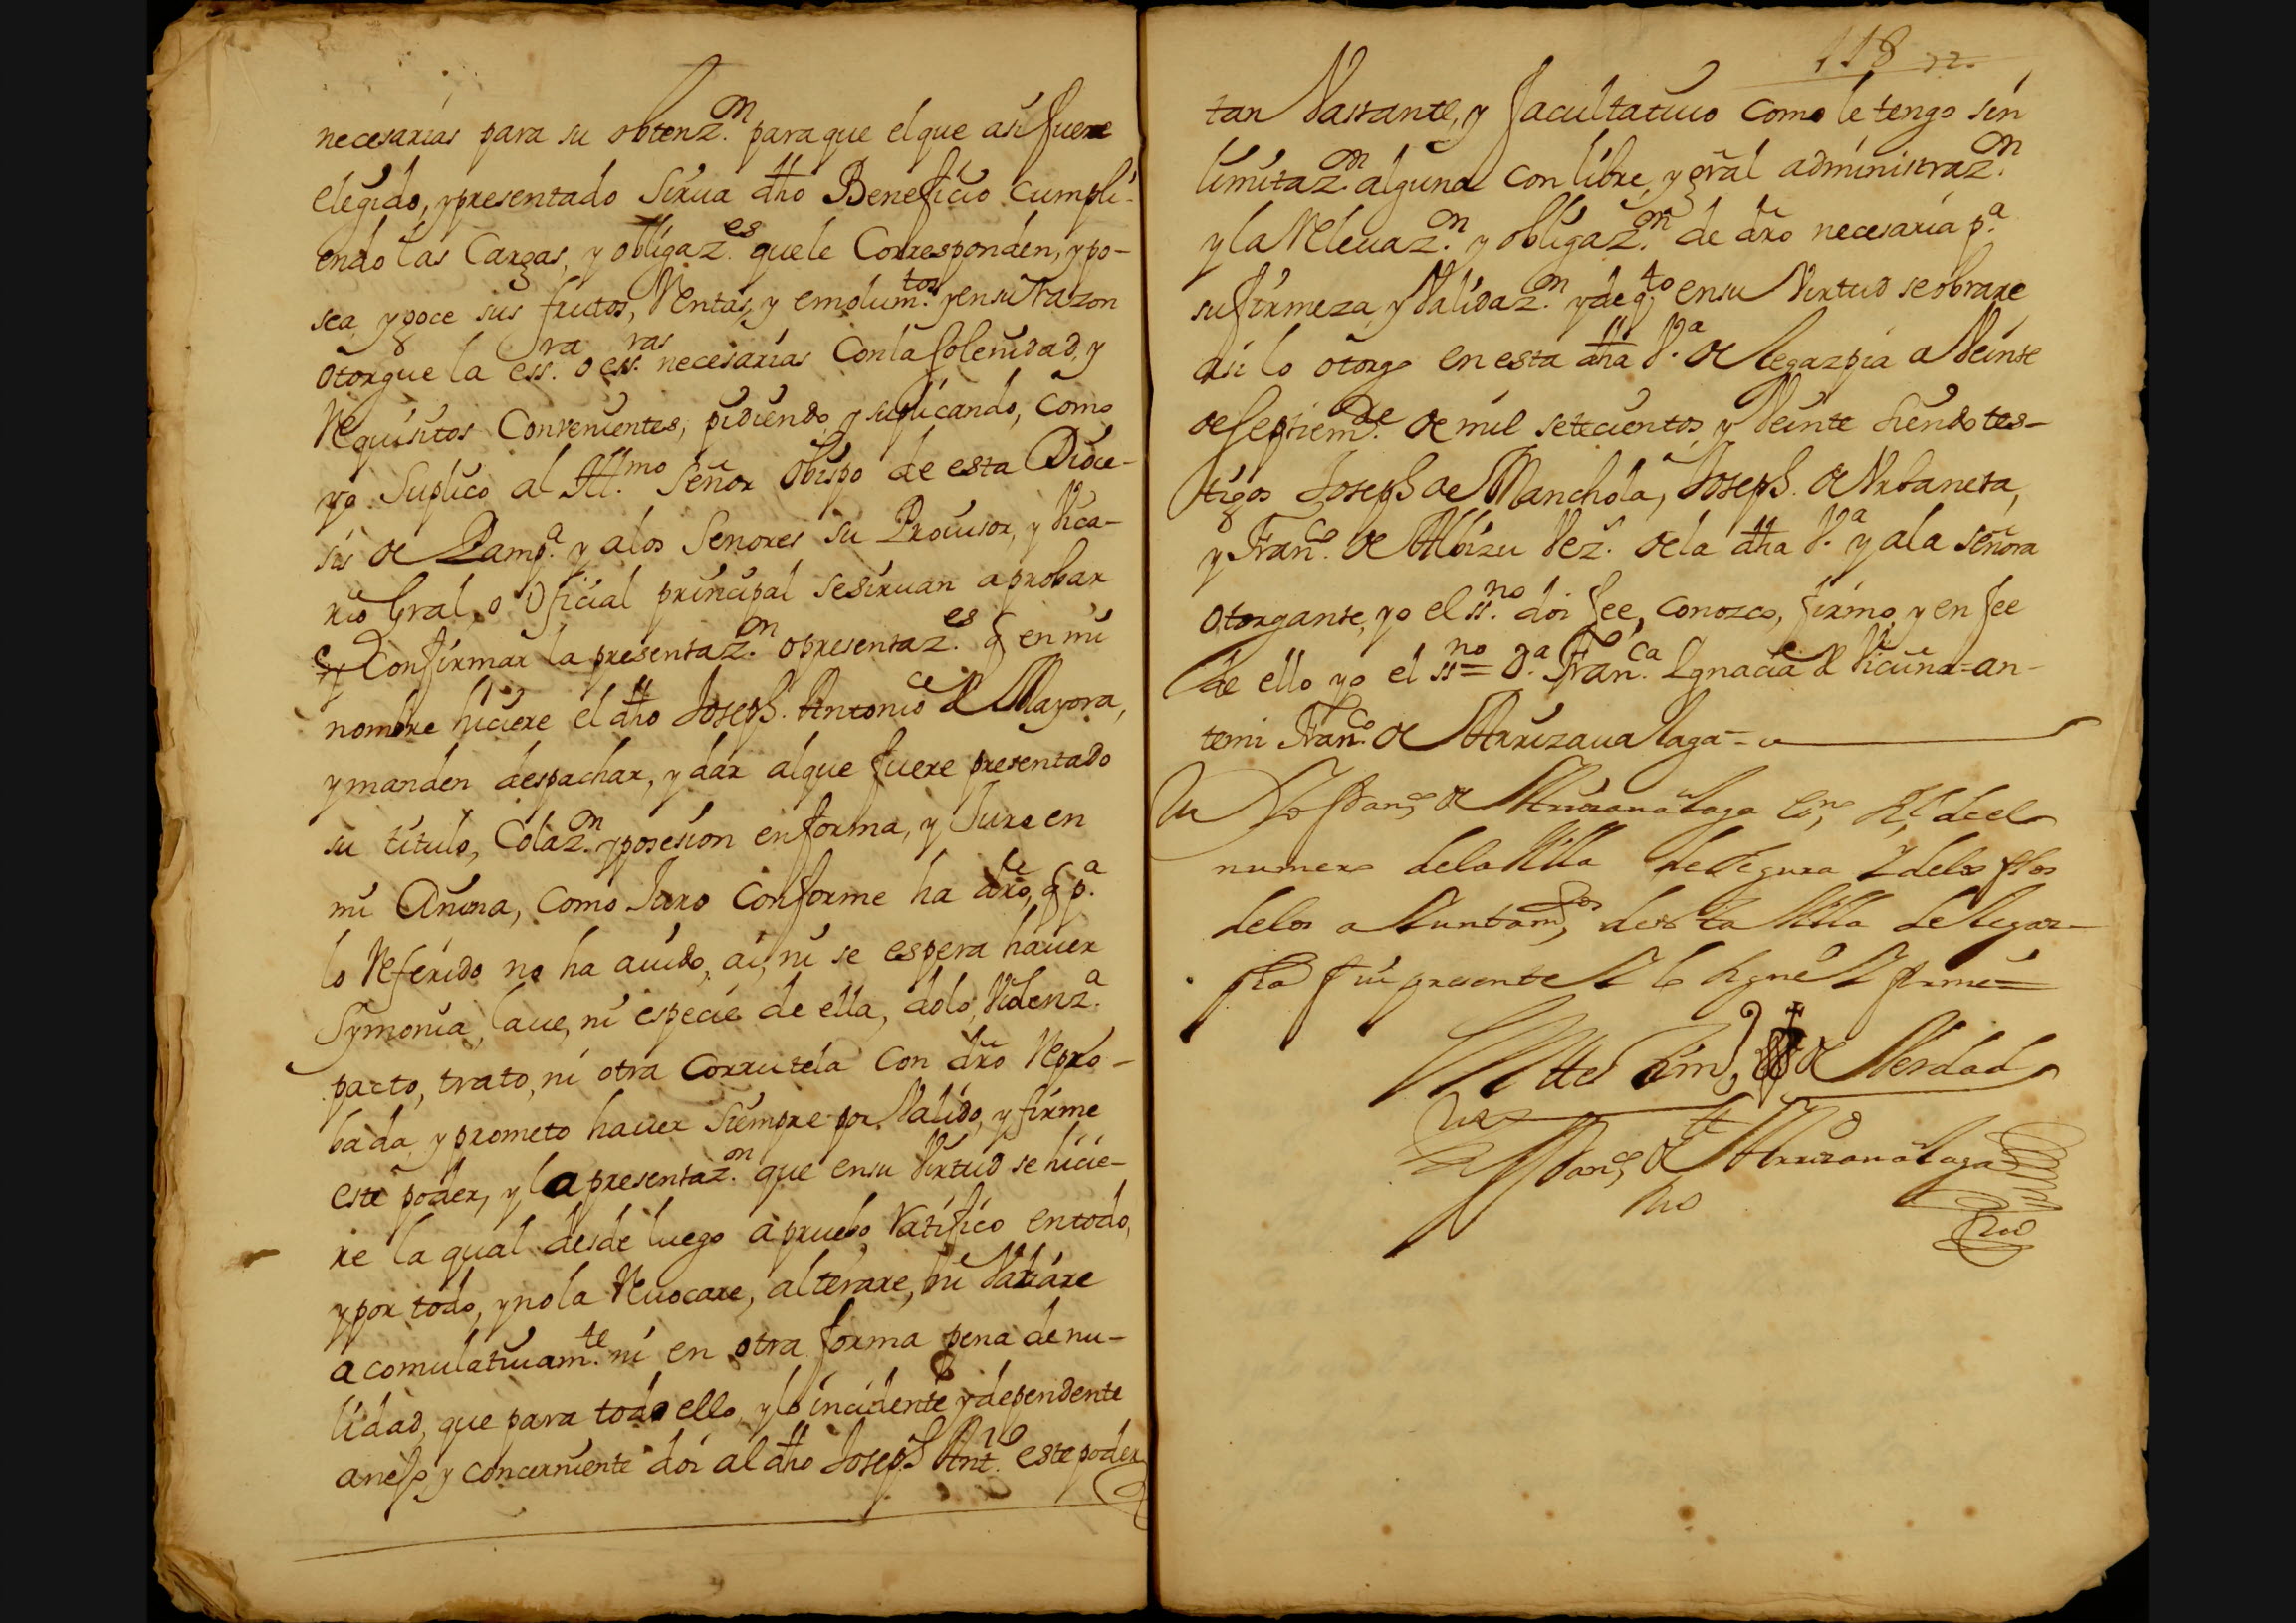 necesarias para su obtenz.on para que el que asi fuere
elegido, y presentado sirua dho Beneficio cumpli-
endo las Cargas, y obligaz.es que le Corresponden, y po-
sea y goce sus frutos, Rentas, y emolum.tos y en su razon
otorgue la ess.ra o ess.ras necesarias Con la solenidad, y
Requisitos Convenientes, pidiendo, y suplicando, como
yo Suplico al Ill.mo Señor Obispo de esta Dioce-
sis de Pamp.a y a los Señores su Prouisor, y Vica-
rio Gral, o Oficial principal se siruan aprobar
y Confirmar la presentaz.on o presentaz.es q en mi
nombre hiciere el dho Joseph Antonio de Mayora,
y manden despachar, y dar al que fuere presentado
su titulo, Colaz.on y posesion en forma, y Jure en
mi Anima, como Juro conforme ha dro, q p.a
lo Referido no ha auido, ai, ni se espera hauer
Symonia, laue, ni especie de ella, dolo, Violenz.a
pacto, trato, ni otra Corrutela con dro Repro-
bada, y prometo hauer siempre por Valido, y firme
este poder, y la presentaz.on que en su Virtud se hicie-
re la qual desde luego apruebo, Ratifico en todo,
y por todo, y no la Reuocare, alterare, ni Variare
acomulatiuam.te ni en otra forma pena de nu-
lidad, que para todo ello, y lo incidente y dependente
anejo, y concerniente doi al dho Joseph Ant.o este poder
118
tan Vastante, y facultatiuo como le tengo sin
limitaz.on alguna con libre, y gral administraz.on
y la Releuaz.on y obligaz.on de dro necesaria p.a
su firmeza, y Validaz.on y de q.to en su Virtud se obrare
asi lo otorgo en esta dha V.a de Legazpia a Veinte
de Septiem.e de mil setecientos y Veinte siendo tes-
tigos Joseph de Manchola, Joseph de Vrtaneta,
y Fran.co de Albizu Vez. de la dha V.a y a la señora
otorgante, yo el ss.no doi fee, conozco, firmo, y en fee
de ello yo el ss.no = D.a Fran.ca Ignacia de Vicuña = an-
temi Fran.co de Arrizaualaga =
Yo Fran.co de Arrizaualaga es.no Rl de el
numero de la Villa de Segura y de los fhos
de los aiuntam.tos de esta Villa de Legaz-
pia fui presente y lo signe y firme =
En testim.o de Verdad
Fran.co de Arrizaualaga